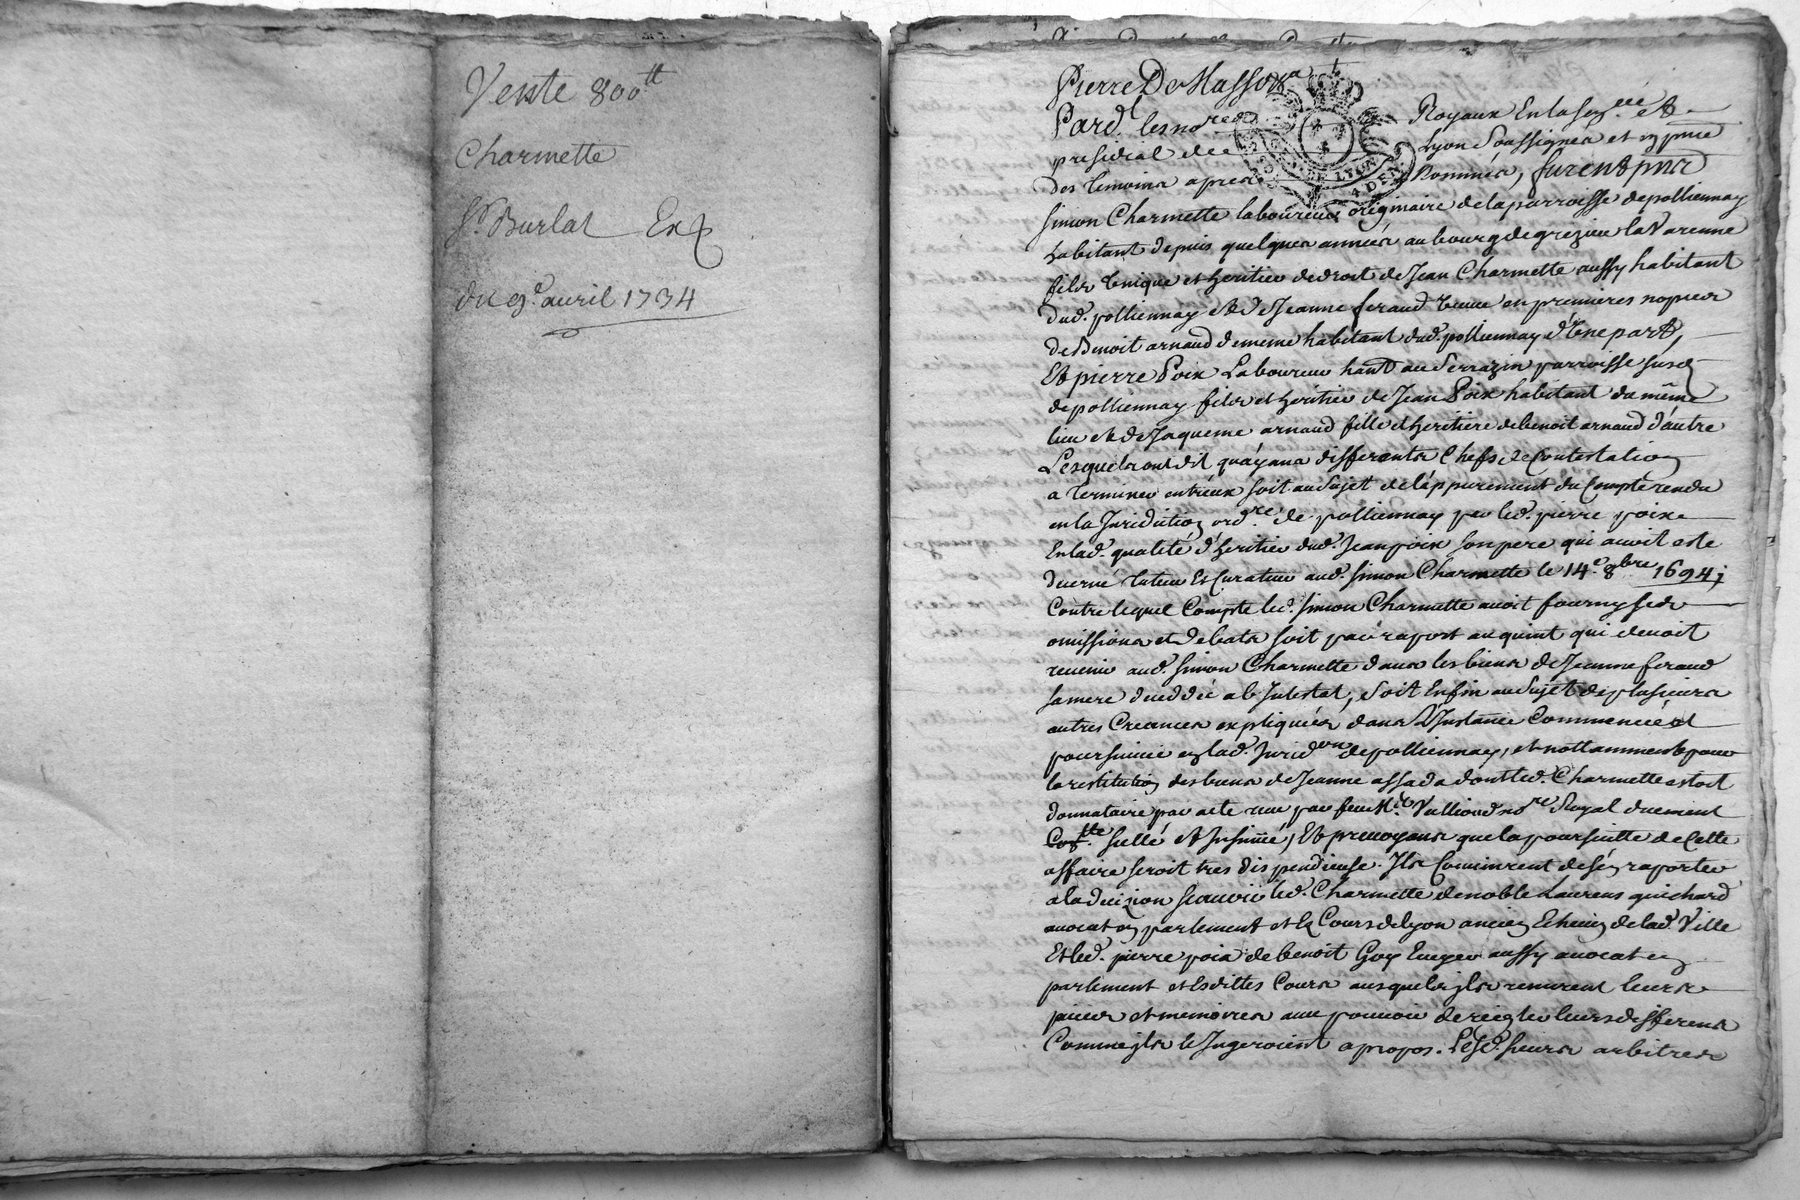 Vente 800 tt
Charmette
Sr. Burlat Ex
du 9e. avril 1734
Pierre De Masso &a
Pard. les no.res Royaux En la Sen.ée et
presidial de Lyon Soussignés et en pnce
des temoins apres Nommés, furent pnts
Simon Charmette laboureur originaire de la parroisse de pollionnay
habitant depuis quelques années au bourg de grezieu la Varenne
fils Unique et heritier de droit de Jean Charmette aussy habitant
dud. pollionnay et de Jeanne feraud veuve en premieres nopces
de Benoit arnaud de meme habitant dud. pollionnay d'Une part,
Et pierre Poix Laboureur hant. au Serrazin parroisse susd.
de pollionnay fils et heritier de Jean Poix habitant du même
lieu et de Jaqueme arnaud fille et heritiere de benoit arnaud d'autre
Lesquels ont dit qu'ayans differents Chefs de Contestation
a terminer entr'eux soit au Sujet de l'appurement du Compte rendu
en la Juridiction ord.re de pollionnay par led. pierre poix
En lad. qualité d'heritier dud. Jean poix son pere qui avoit esté
decerné tuteur Et Curateur aud. Simon Charmette le 14e. 8bre 1694;
Contre lequel Compte led. Simon Charmette avoit fourny ses
omissions et debats soit par raport au quint qui devoit
revenir aud. Simon Charmette dans les biens de Jeanne feraud
sa mere decedée ab Intestat, Soit Enfin au Sujet de plusieurs
autres Creances expliquées dans L'Instance Commencée et
poursuivie en lad. Jurid.on de pollionnay, et nottamment pour
la restitution des biens de Jeanne assada dont led. Charmette estoit
donnataire par acte reçu par feu M.e Vullioud no.re Royal duement
Con.llé Scellé et Insinué, Et prevoyans que la poursuitte de Cette
affaire seroit tres dispendieuse. Ils Convinrent de s'en raporter
a la decizion sçavoir led. Charmette de noble Laurens guichard
avocat en parlement et es Cours de Lyon ancien Echevin de lad. Ville
Et led. pierre poix de benoit Goy Ecuyer aussy avocat en
parlement et esdittes Cours ausquels ils remirent leurs
pieces et memoires avec pouvoir de regler leurs differens
Comme ils le Jugeroient a propos. Lesd. sieurs arbitres